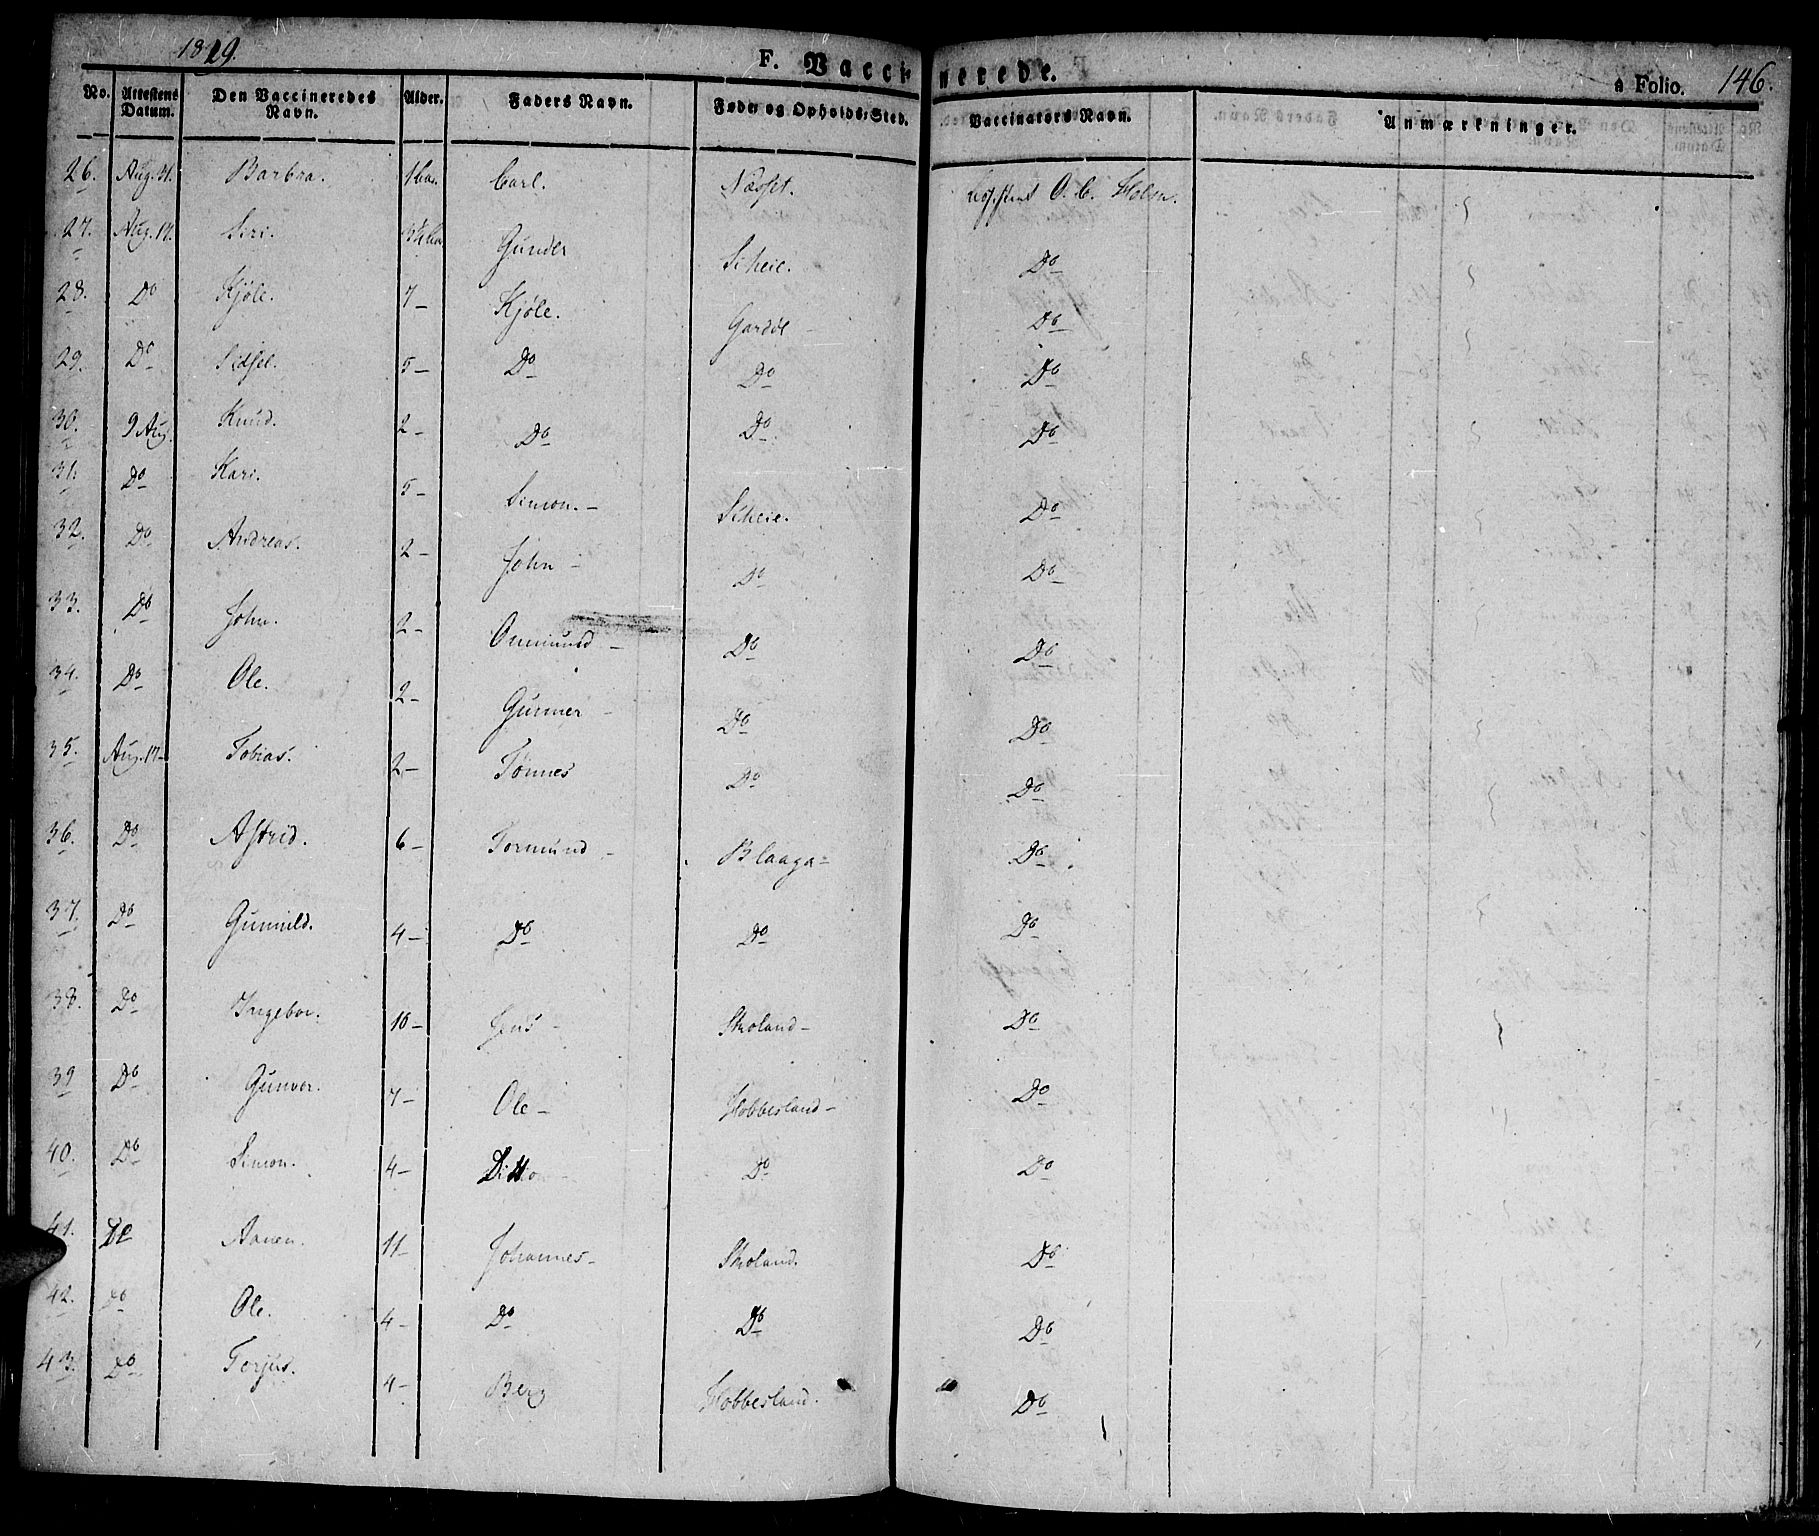 1829.
F. Vaccinerede.
a Folio. 146.
No. Attestens Datum. Den Vaccineredes Navn. Alder. Faders Navn. Føde og Opholds-Sted. Vaccinators Navn. Anmærkninger.
26. Aug. 31. Barbra. Carl. Næsset. O. C. Holm.
27. Aug. 17. Siri. Gunder Scheie. Do
28. Do Kjöle. 7- Kjöle. Gardöl Do
29. Do Sidsel. 5- Do Do Do
30. 9 Aug. Knud. 2- Do Do Do
31. Do Kari. 5- Simon.- Scheie. Do
32. Do Andreas. 2- John- Do Do
33. Do John. 2- Onmund- Do Do
34. Do Ole. 2- Gunner- Do Do
35. Aug. 17- Tobias. 2- Tönnes Do Do
36. Do Astrid. 6- Tormund- Blaaga- Do
37. Do Gunnild. 4- Do Do Do
38. Do Ingebor. 10- Jens- Skoland- Do
39 Do Gunvor. 7- Ole- Hobbesland- Do
40. Do Simon. 4- Ditto- Do Do
41. Do Aanen. 11- Johannes- Skoland. Do
42. Do Ole. 4- Do Do Do
43. Do Torjus. 4- Berg Hobbesland. Do